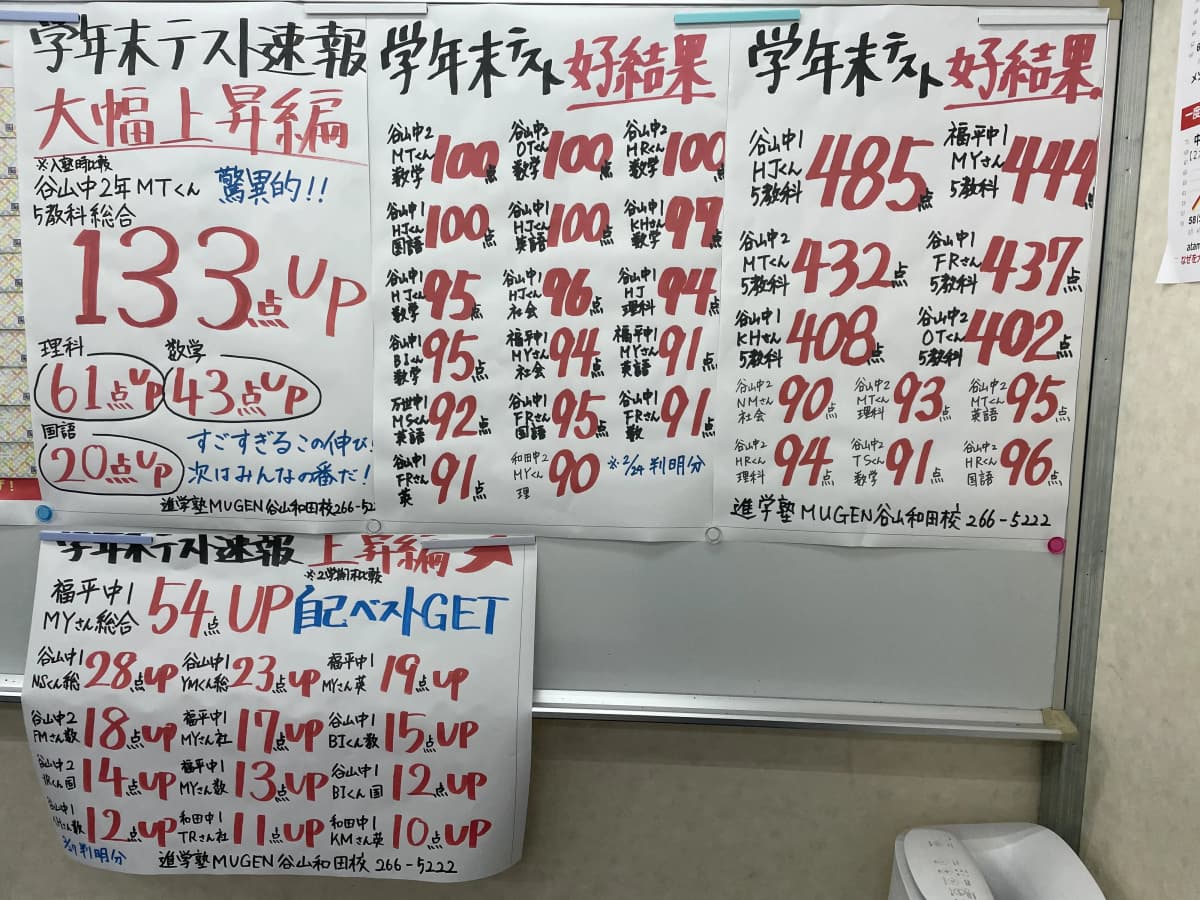 学年末テスト速報
大幅上昇編
※入塾時比較
谷山中2年MTくん 驚異的!!
5教科総合
133点UP
理科 数学
61点UP 43点UP
国語
20点UP
すごすぎるこの伸び!
次はみんなの番だ!
進学塾MUGEN谷山和田校266-52
学年末テスト 好結果
谷山中2 MTくん 数学 100点
谷山中2 OTくん 数学 100点
谷山中2 MRくん 数学 100点
谷山中1 HJくん 国語 100点
谷山中1 HJくん 英語 100点
谷山中1 KHさん 数学 97点
谷山中1 HJくん 数学 95点
谷山中1 HJくん 社会 96点
谷山中1 HJ 理科 94点
谷山中1 BIくん 数学 95点
福平中1 MYさん 社会 94点
福平中1 MYさん 英語 91点
万世中1 MSくん 英語 92点
谷山中1 FRさん 国語 95点
谷山中1 FRさん 数 91点
谷山中1 FRさん 英 91点
和田中2 MYくん 理 90
※2/24判明分
学年末テスト 好結果
谷山中1 HJくん 5教科 485点
福平中1 MYさん 5教科 444点
谷山中2 MTくん 5教科 432点
谷山中1 FRさん 5教科 437点
谷山中1 KHさん 5教科 408点
谷山中2 OTくん 5教科 402点
谷山中2 NMさん 社会 90点
谷山中2 MTくん 理科 93点
谷山中2 MTくん 英語 95点
谷山中2 HRくん 理科 94点
谷山中2 TSくん 数学 91点
谷山中2 HRくん 国語 96点
進学塾MUGEN谷山和田校266-5222
学年末テスト速報 上昇編
※2学期末比較
福平中1 MYさん総合 54点UP 自己ベストGET
谷山中1 NSくん総 28点UP
谷山中1 YMくん総 23点UP
福平中1 MYさん英 19点UP
谷山中2 FMさん数 18点UP
福平中1 MYさん社 17点UP
谷山中1 BIくん数 15点UP
谷山中2 くん国 14点UP
福平中1 MYさん数 13点UP
谷山中1 BIくん国 12点UP
山中1 Hさん数 12点UP
和田中1 TRさん社 11点UP
和田中1 KMさん英 10点UP
判明分
進学塾MUGEN谷山和田校 266-5222